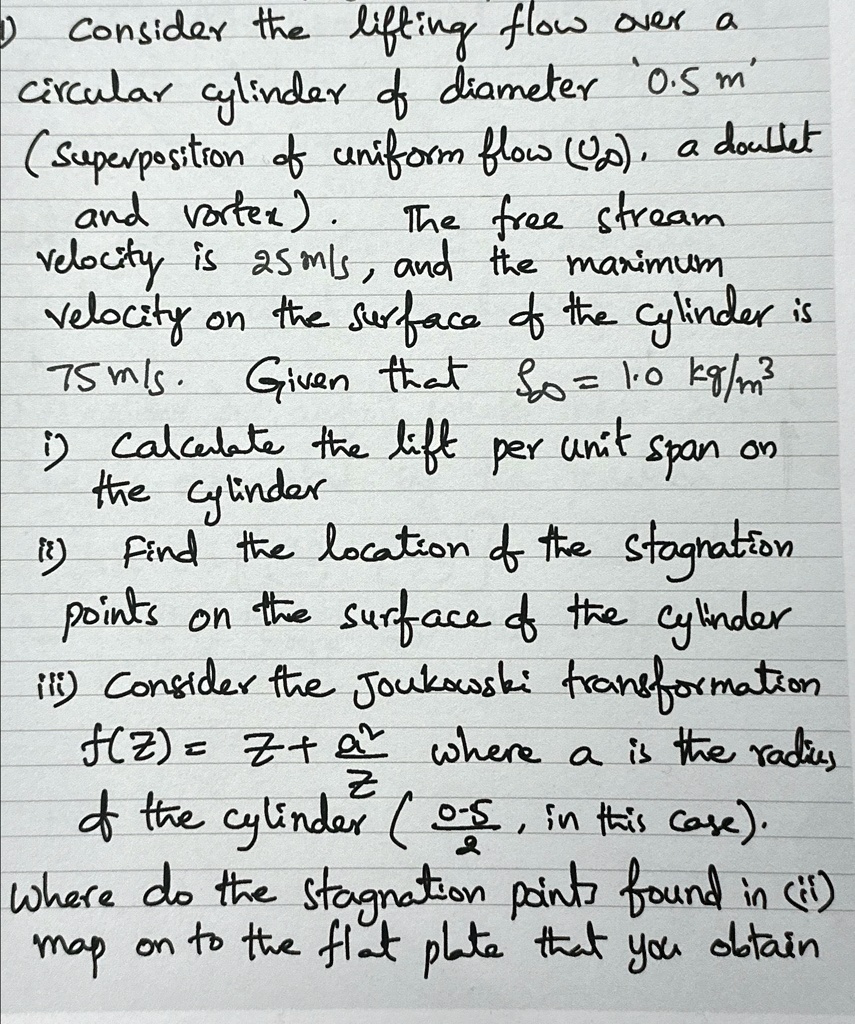 1) Consider the lifting flow over a
circular cylinder of diameter '0.5 m'
(Superposition of uniform flow (U∞), a doublet
and vortex). The free stream
velocity is 25 m/s, and the maximum
velocity on the surface of the cylinder is
75 m/s. Given that ρ∞ = 1.0 kg/m³
i) Calculate the lift per unit span on
the cylinder
ii) Find the location of the stagnation
points on the surface of the cylinder
iii) Consider the Joukowski transformation
f(z) = z + a²/z where a is the radius
of the cylinder (0.5/2, in this case).
Where do the stagnation points found in (ii)
map on to the flat plate that you obtain